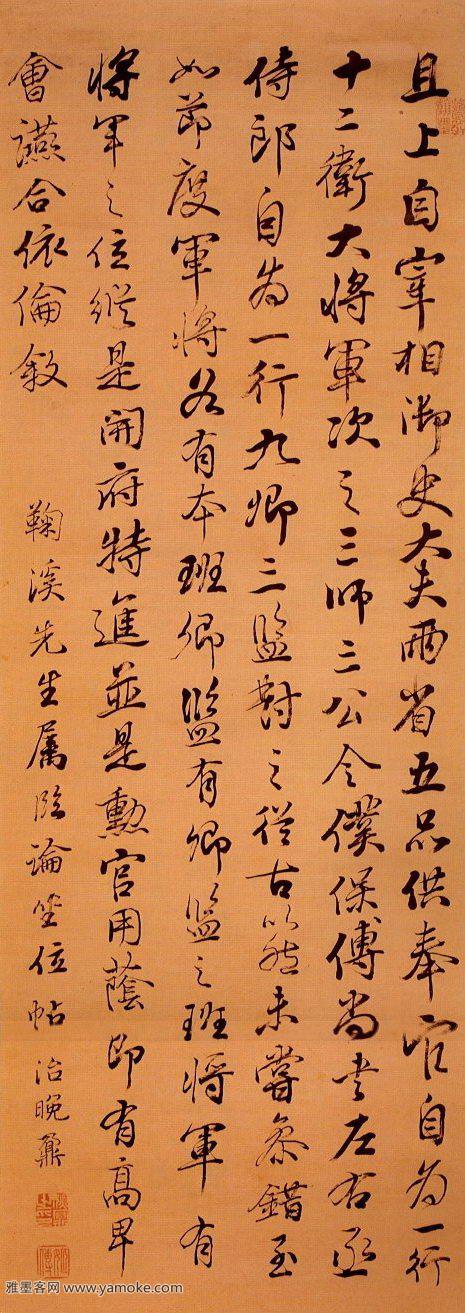 且上自宰相御史大夫兩省五品供奉官自為一行
十二衛大將軍次之三師三公令僕保傅尚書左右丞
侍郎自為一行九卿三監對之從古以然未嘗參錯至
如節度軍將各有本班卿監有卿監之班將軍有
將軍之位縱是開府特進並是勳官用蔭即有高卑
會讌合依倫敘
鞠溪先生屬臨論坐位帖 治晚鼐
雅墨客网 www.yamoke.com